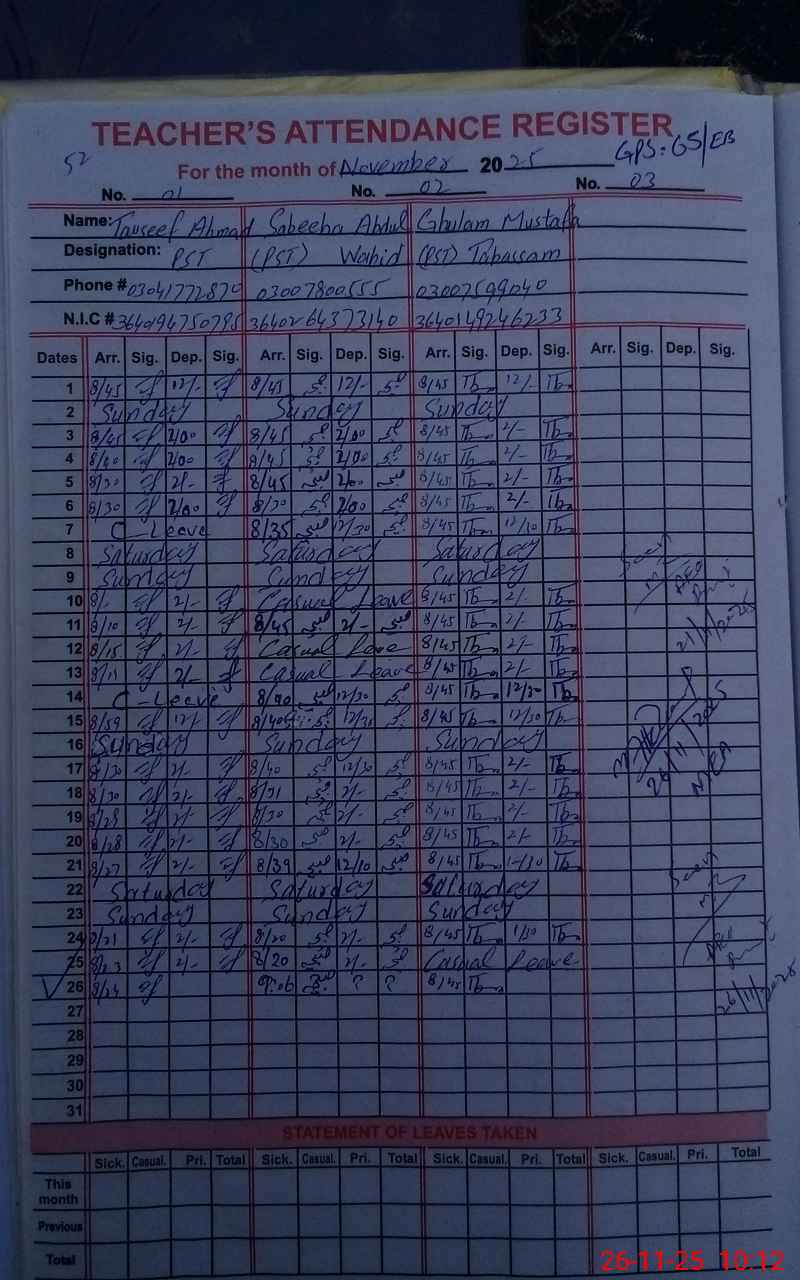 TEACHER'S ATTENDANCE REGISTER
52 For the month of November 2025 GPS: GS/EB
No. 01 No. 02 No. 03
Name: Tauseef Ahmad Sabeeha Abdul Ghulam Mustafa
Designation: PST (PST) Wahid (PST) Tabassam
Phone # 03041772870 03007800555 03007599040
N.I.C # 3640194750795 3640264373140 3640149246233
Dates Arr. Sig. Dep. Sig. Arr. Sig. Dep. Sig. Arr. Sig. Dep. Sig. Arr. Sig. Dep. Sig.
1 8/45 12/- 8/45 12/- 8/45 Tb 12/- Tb
2 Sunday Sunday Sunday
3 8/45 2/00 8/45 2/00 8/45 Tb 2/- Tb
4 8/40 2/00 8/45 2/00 8/45 Tb 2/- Tb
5 8/30 2/- 8/45 2/00 8/45 Tb 2/- Tb
6 8/30 2/00 8/30 2/00 8/45 Tb 2/- Tb
7 C-Leave 8/35 12/30 8/45 Tb 12/10 Tb
8 Saturday Saturday Saturday
9 Sunday Sunday Sunday
10 8/- 2/- Casual Leave 8/45 Tb 2/- Tb
11 8/10 2/- 8/45 2/- 8/45 Tb 2/- Tb
12 8/15 2/- Casual Leave 8/45 Tb 2/- Tb
13 8/11 2/- Casual Leave 8/45 Tb 2/- Tb
14 C-Leave 8/40 12/30 8/45 Tb 12/30 Tb
15 8/59 12/- 8/40 12/30 8/45 Tb 12/30 Tb
16 Sunday Sunday Sunday
17 8/30 2/- 8/40 12/30 8/45 Tb 2/- Tb
18 8/30 2/- 8/31 2/- 8/45 Tb 2/- Tb
19 8/28 2/- 8/30 2/- 8/45 Tb 2/- Tb
20 8/28 2/- 8/30 2/- 8/45 Tb 2/- Tb
21 8/27 2/- 8/39 12/10 8/45 Tb Tb
22 Saturday Saturday Saturday
23 Sunday Sunday Sunday
24 8/21 2/- 8/20 2/- 8/45 Tb 1/10 Tb
25 8/23 2/- 8/20 2/- Casual Leave
26 8/24 9:06 ? ? 8/45 Tb
27
28
29
30
31
21/11/2025
26/11/2025
26/11/2025
STATEMENT OF LEAVES TAKEN
Sick. Casual. Pri. Total Sick. Casual. Pri. Total Sick. Casual. Pri. Total Sick. Casual. Pri. Total
This month
Previous
Total
26-11-25 10:12